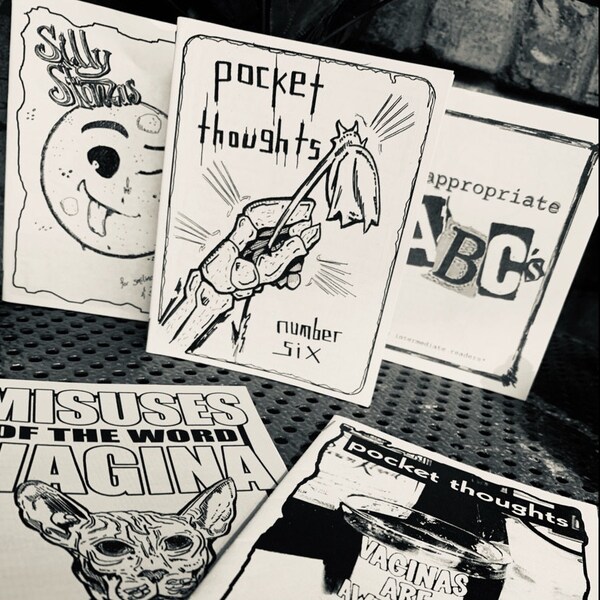 Silly
Stankus
pocket
thoughts
number
six
appropriate
ABC's
intermediate readers*
MISUSES
OF THE WORD
VAGINA
pocket thoughts
VAGINAS
ARE